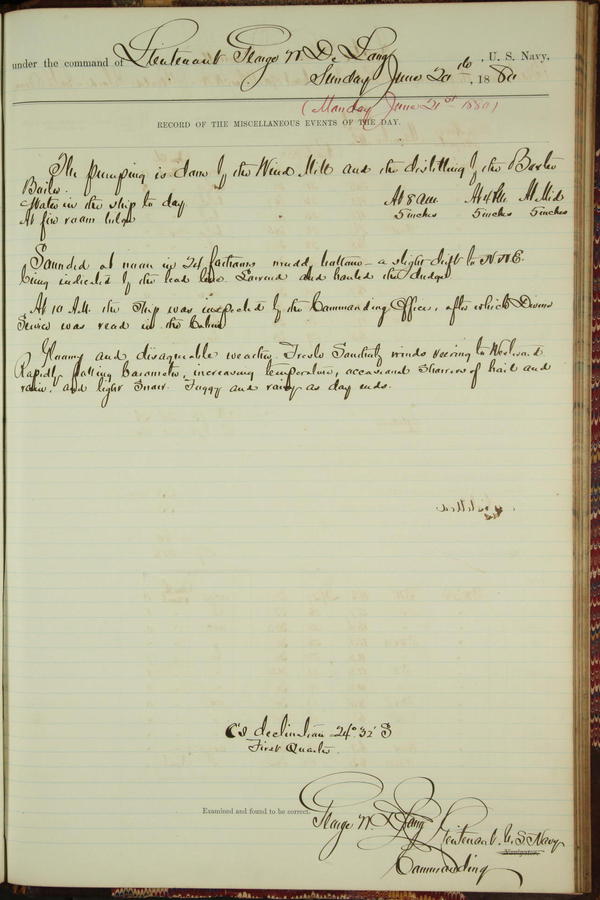 under the command of Lieutenant George W. De Long, U. S. Navy,
Sunday June 20th, 1880
(Monday June 21st 1880)
RECORD OF THE MISCELLANEOUS EVENTS OF THE DAY.
The pumping is done by the Wind Mill and the distilling by the Baxter
Boiler.
Water in the ship to day At 8 AM. At 4 PM. At Mid
At fire room bilge 5 inches 5 inches 5 inches
Sounded at noon in 24 fathoms muddy bottom – a slight drift to NNE.
being indicated by the lead line. Lowered and hauled the dredge
At 10 A.M. the Ship was inspected by the Commanding Officer, after which Divine
Service was read in the Cabin
Gloomy and disagreeable weather. Fresh Southerly winds veering to Westward
Rapidly falling Barometer, increasing temperature, occasional Showers of hail and
rain and light Snow. Foggy and rainy as day ends.
C's declination 24° 32' S
First Quarter.
Examined and found to be correct.
George W. De Long Lieutenant U.S. Navy
Navigator.
Commanding